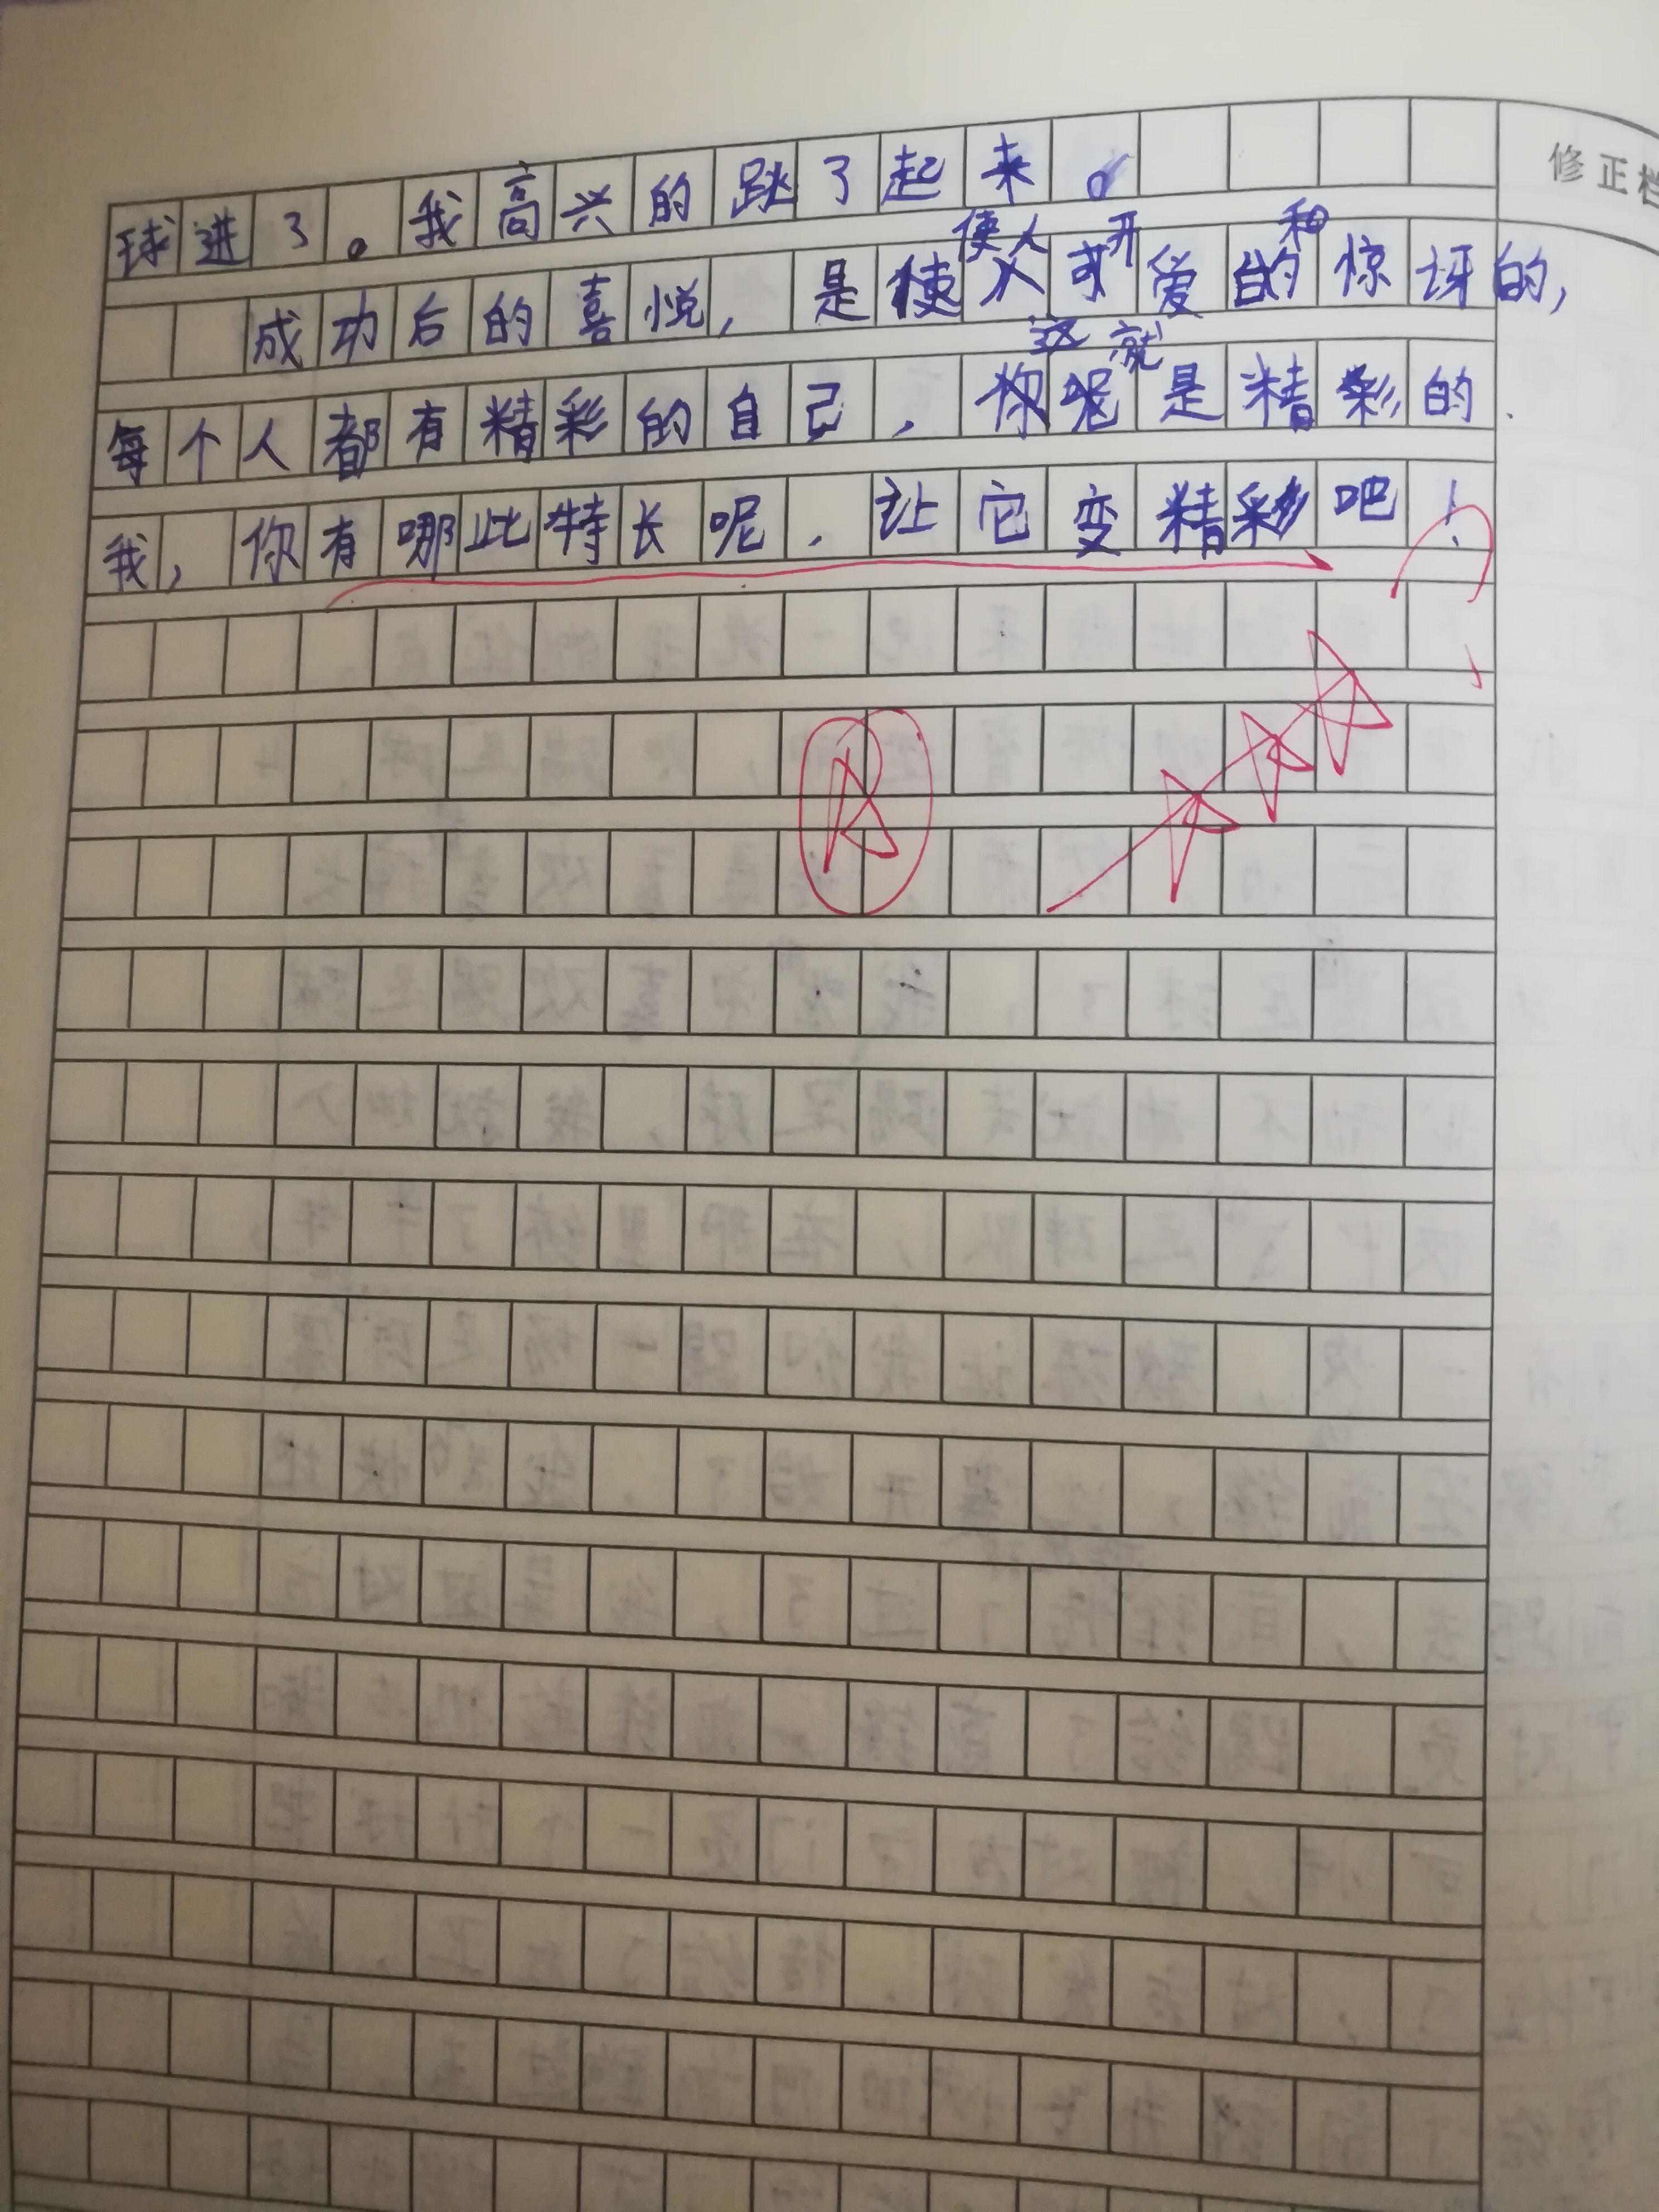 修正栏
球进了。我高兴的跳了起来。
使人 开 和
成功后的喜悦,是使人可爱的惊讶的,
这就
每个人都有精彩的自己,你呢是精彩的
我,你有哪此特长呢.让它变精彩吧!